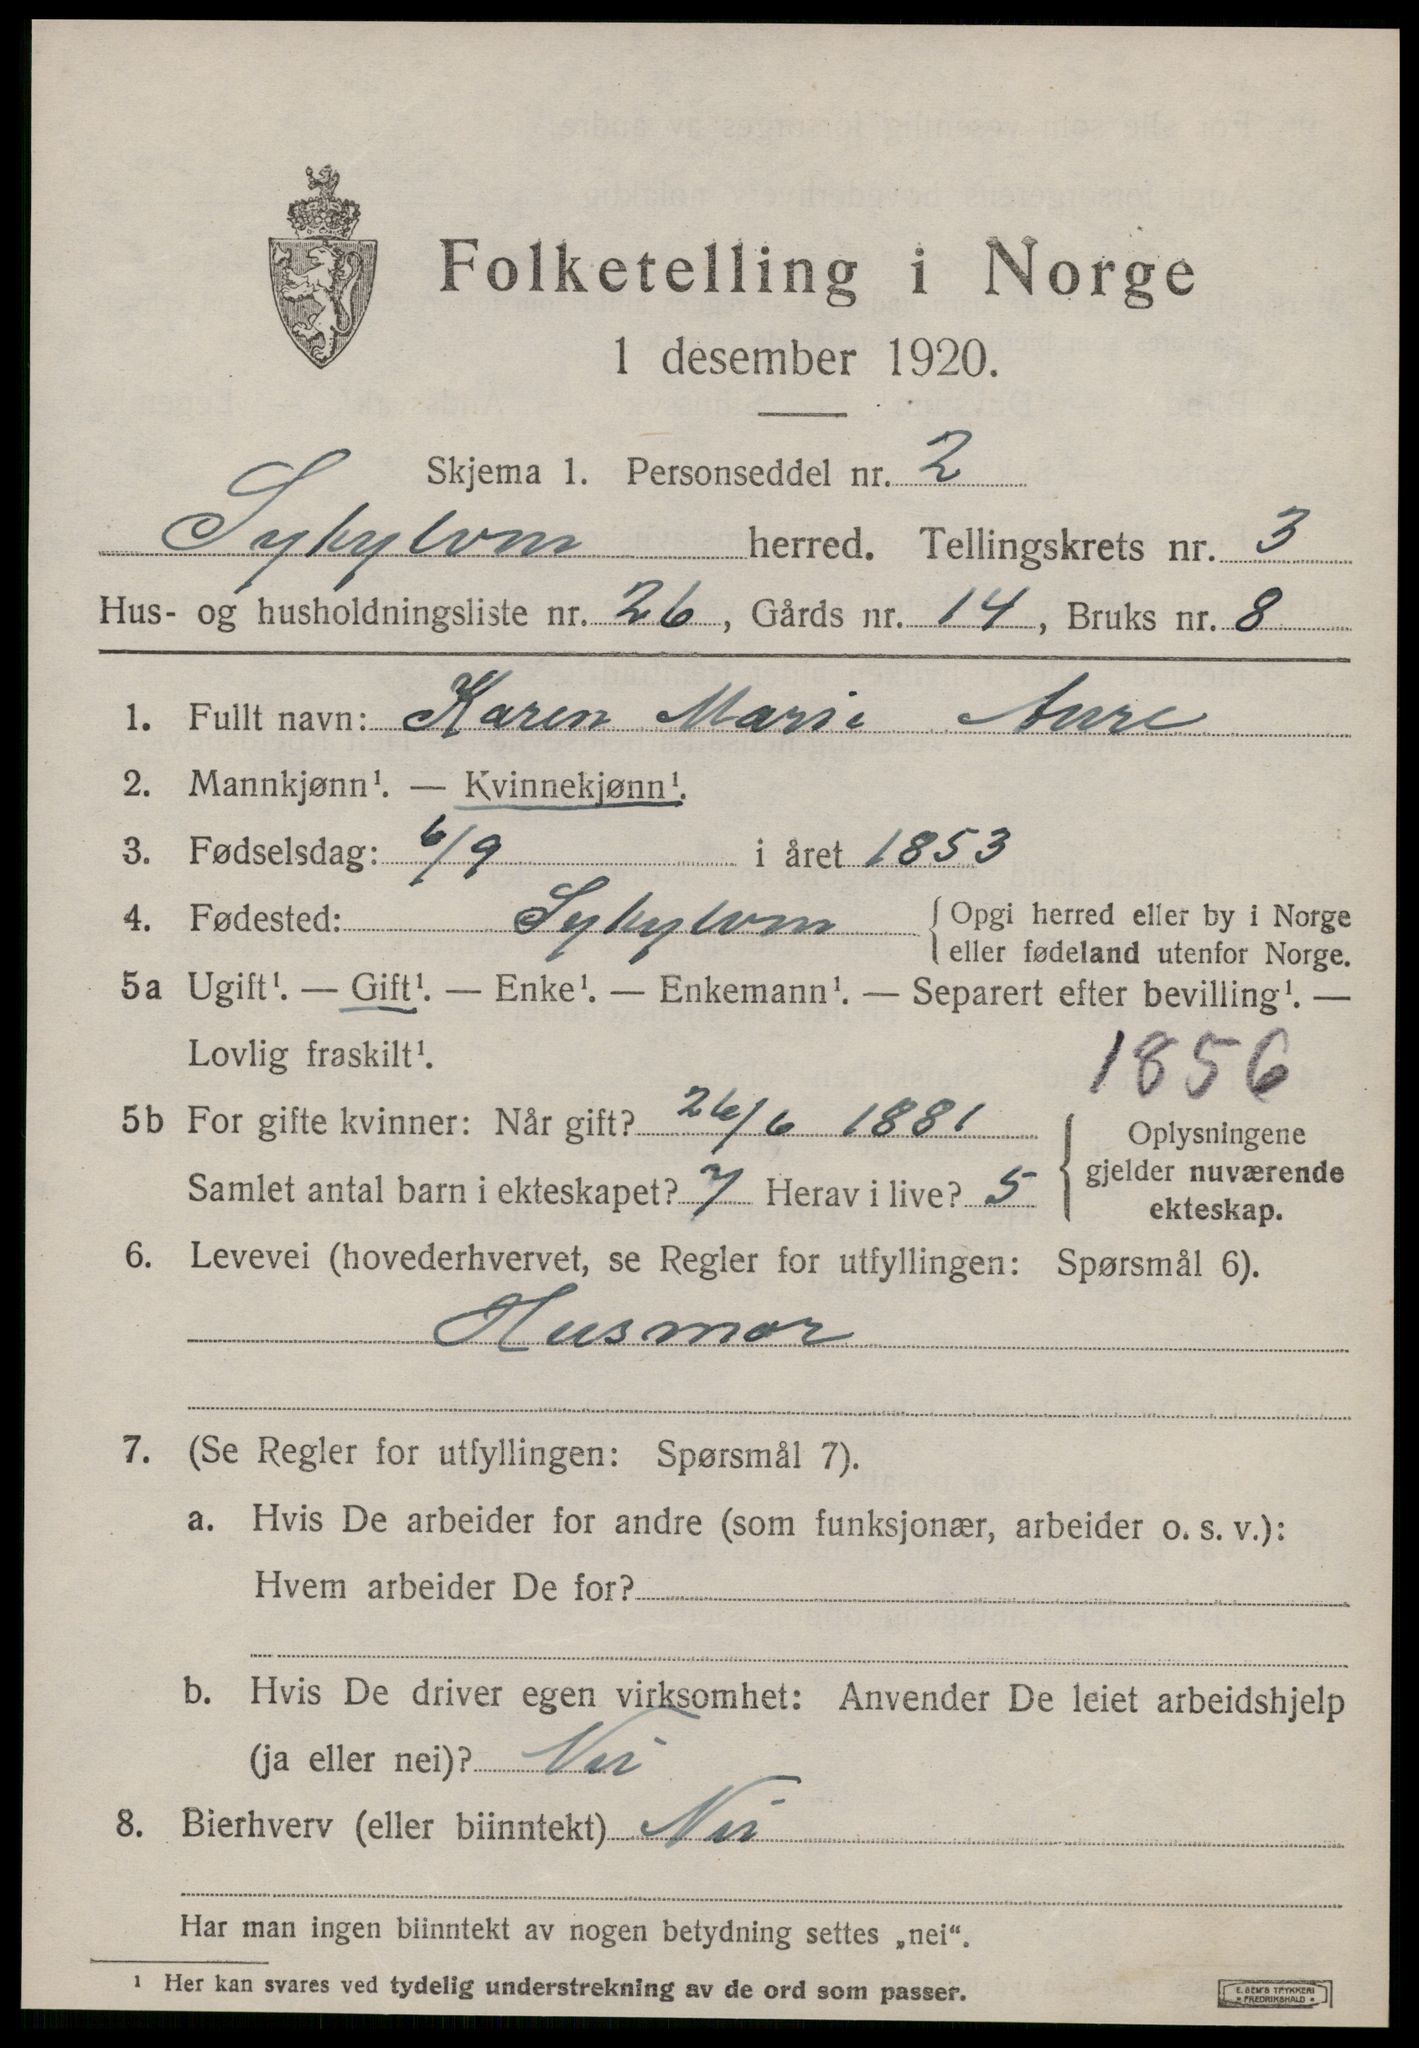 Folketelling i Norge
1 desember 1920.
Skjema 1. Personseddel nr. 2
Sykylven herred. Tellingskrets nr. 3
Hus- og husholdningsliste nr. 26, Gårds nr. 14, Bruks nr. 8
1. Fullt navn: Karen Marie Aure
2. Mannkjønn¹. — Kvinnekjønn¹.
3. Fødselsdag: 6/9 i året 1853
4. Fødested: Sykylven { Opgi herred eller by i Norge
eller fødeland utenfor Norge.
5a Ugift¹. — Gift¹. — Enke¹. — Enkemann¹. — Separert efter bevilling¹. —
Lovlig fraskilt¹.
1856
5b For gifte kvinner: Når gift? 26/6 1881
Samlet antal barn i ekteskapet? 7 Herav i live? 5
{ Oplysningene
gjelder nuværende
ekteskap.
6. Levevei (hovederhvervet, se Regler for utfyllingen: Spørsmål 6).
Husmor
7. (Se Regler for utfyllingen: Spørsmål 7).
a. Hvis De arbeider for andre (som funksjonær, arbeider o. s. v.):
Hvem arbeider De for?
b. Hvis De driver egen virksomhet: Anvender De leiet arbeidshjelp
(ja eller nei)? Nei
8. Bierhverv (eller biinntekt) Nei
Har man ingen biinntekt av nogen betydning settes „nei“.
¹ Her kan svares ved tydelig understrekning av de ord som passer.
E. SEM'S TRYKKERI
* FREDRIKSHALD *